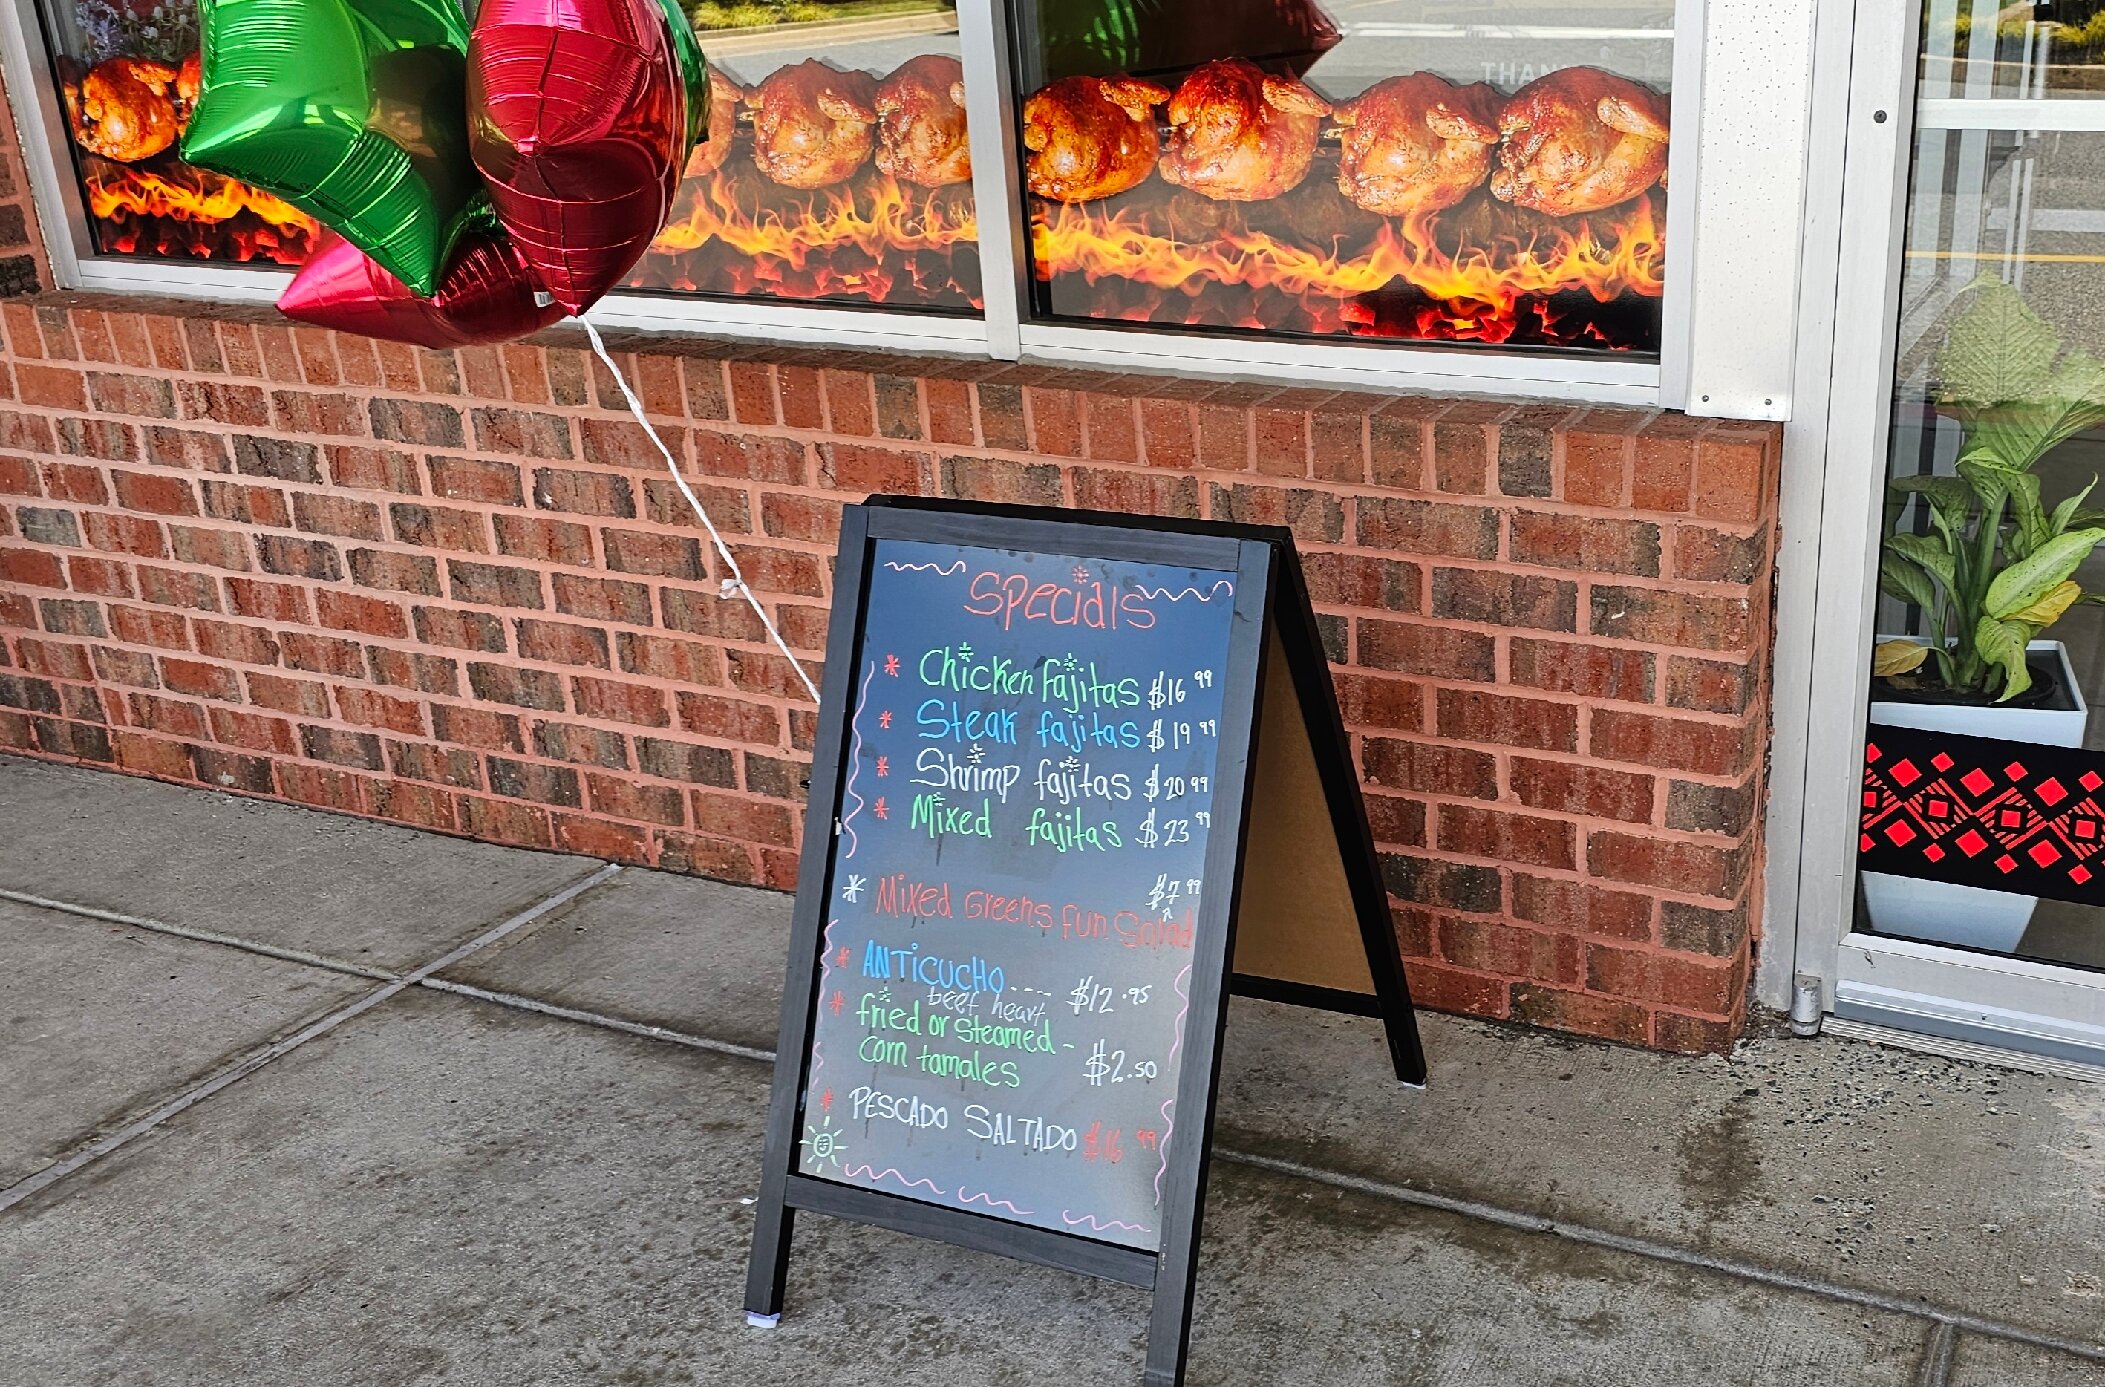 THAN
Specials
* Chicken fajitas $16 99
* Steak fajitas $19 99
* Shrimp fajitas $20 99
* Mixed fajitas $23 99
* Mixed Greens fun Salad $7 99
* ANTiCUCHO.... $12.95
beef heart
* fried or steamed -
corn tamales $2.50
* PESCADO SALTADO $16 99